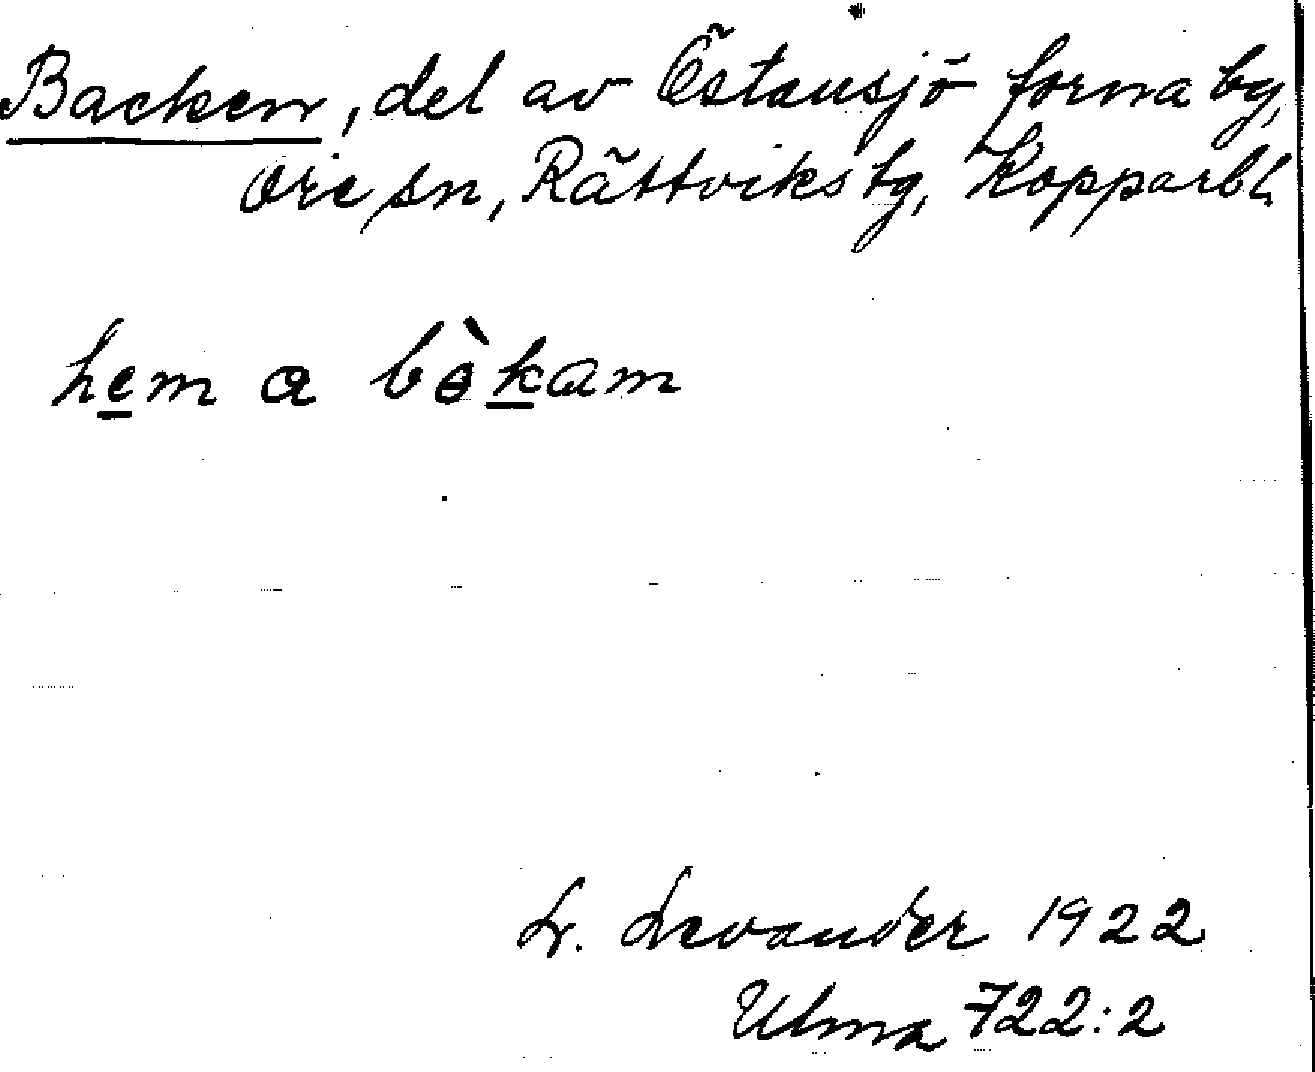 Backen, del av Östansjö forna by,
Ore sn, Rättviks tg, Kopparbl.
hem a bɵ̀kam
L. Levander 1922
Ulma 722:2